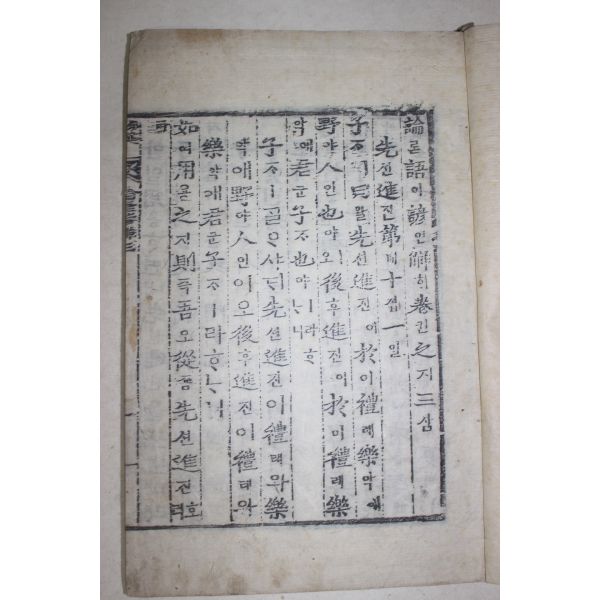 論론語어諺언解ᄒᆡ卷권之지三삼
先션進진第뎨十십一일
子ᄌᆞㅣ曰왈先션進진이於어禮례樂악애
野야人인也야ㅣ오後후進진이於어禮례樂
악애君군子ᄌᆞ也야ㅣ라ᄒᆞᄂᆞ니
子ᄌᆞㅣᄀᆞᆯᄋᆞ샤ᄃᆡ先션進진이禮례와樂
악애野야人인이오後후進진이禮례와
樂악애君군子ᄌᆞㅣ라ᄒᆞᄂᆞ니
如여用용之지則즉吾오從죵先션進진호